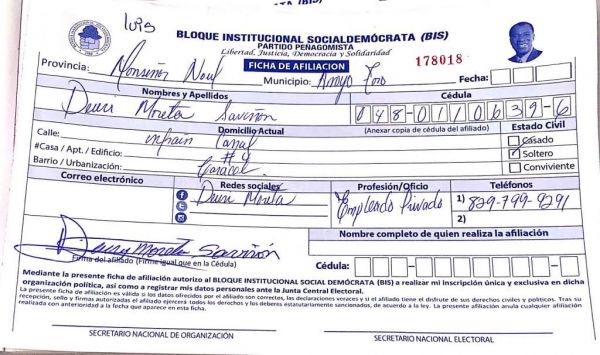 Luis
BLOQUE INSTITUCIONAL SOCIALDEMÓCRATA (BIS)
PARTIDO PEÑAGOMISTA
Libertad, Justicia, Democracia y Solidaridad
FICHA DE AFILIACION
178018
Provincia: Monseñor Nouel Municipio: Arroyo Toro Fecha:
Nombres y Apellidos Cédula
Deury Moreta Saviñon 048-0110639-6
Domicilio Actual (Anexar copia de cédula del afiliado) Estado Civil
Calle: Canal Casado
#Casa / Apt. / Edificio: #4 Soltero
Barrio / Urbanización: Caracol Conviviente
Correo electrónico Redes sociales Profesión/Oficio Teléfonos
Deury Moreta Empleado Privado 1) 829-799-9291
2)
Nombre completo de quien realiza la afiliación
Deury Moreta Saviñón
Firma del afiliado (Firme igual que en la Cédula) Cédula:
Mediante la presente ficha de afiliación autorizo al BLOQUE INSTITUCIONAL SOCIAL DEMÓCRATA (BIS) a realizar mi inscripción única y exclusiva en dicha
organización política, así como a registrar mis datos personales ante la Junta Central Electoral.
La presente ficha de afiliación es válida si los datos ofrecidos por el afiliado son correctos, las declaraciones veraces y si el afiliado tiene el disfrute de sus derechos civiles y políticos. Tras su
recepción, sello y firmas autorizadas el afiliado ejercerá todos los derechos y los deberes estatutariamente sancionados, de acuerdo a la ley. La presente afiliación anula cualquier afiliación
realizada con anterioridad a la fecha que aparece en esta ficha.
SECRETARIO NACIONAL DE ORGANIZACIÓN SECRETARIO NACIONAL ELECTORAL